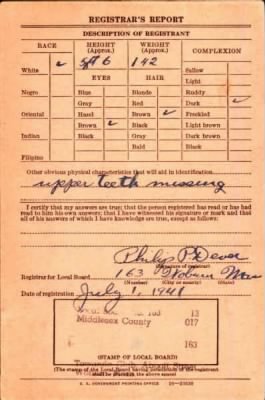 REGISTRAR'S REPORT
DESCRIPTION OF REGISTRANT
RACE HEIGHT (Approx.) WEIGHT (Approx.) COMPLEXION
White ✓ 5ft 6 142 Sallow
EYES HAIR Light
Negro Blue Blonde Ruddy
Gray Red Dark ✓
Oriental Hazel Brown ✓ Freckled
Brown ✓ Black Light brown
Indian Black Gray Dark brown
Bald Black
Filipino
Other obvious physical characteristics that will aid in identification
upper teeth missing
I certify that my answers are true; that the person registered has read or has had
read to him his own answers; that I have witnessed his signature or mark and that
all of his answers of which I have knowledge are true, except as follows:
Philip P. Dever
(Signature of registrar)
Registrar for Local Board 163 Woburn Mass
(Number) (City or county) (State)
Date of registration July 1, 1941
163 13
Middlesex County 017
163
(STAMP OF LOCAL BOARD)
(The stamp of the Local Board having jurisdiction of the registrant
shall be placed in the above space)
U. S. GOVERNMENT PRINTING OFFICE